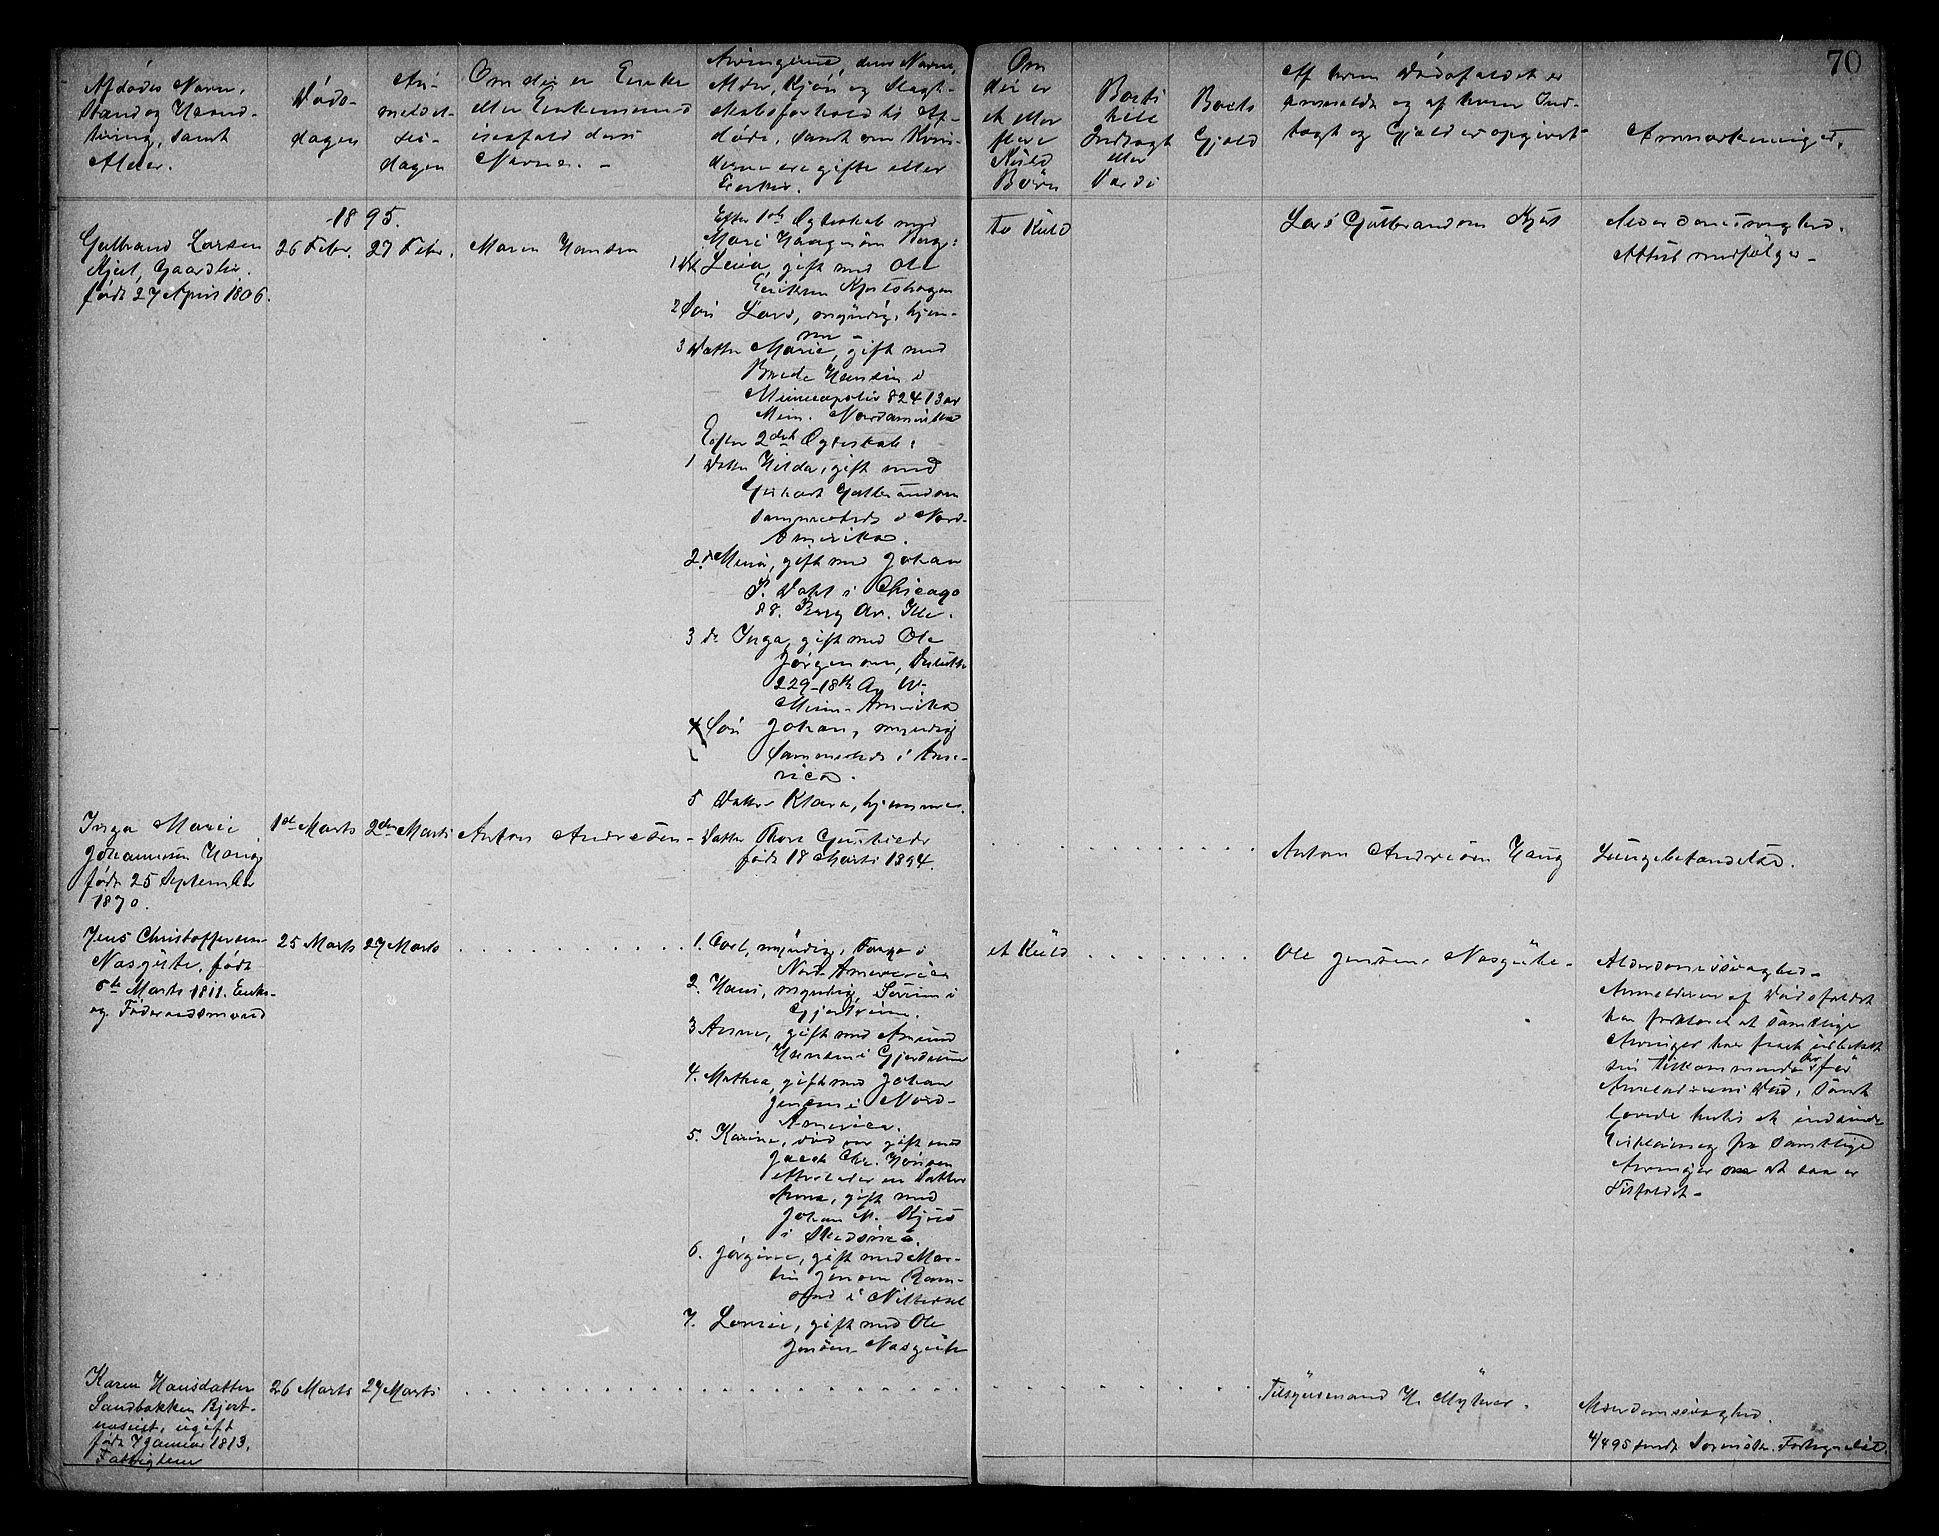 70
Afdödes Navn,
Stand og Haand-
tering, samt
Alder.
Döds-
dagen
An-
meldel-
ses-
dagen
Om der er Enke
eller Enkemand
isaafald dens
Navn. -
Arvingerne, deres Navne,
Alder, Kjön og Slægt-
skabsforhold til Af-
döde, samt om Kvin-
derne ere gifte eller
Enker.
Om
der er
et eller
flere
Kuld
Börn
Boets
hele
Indtægt
eller
Værdi
Boets
Gjæld
Af hvem Dödsfaldet er
anmeldt og af hvem Ind-
tægt og Gjæld er opgivet
Anmærkninger.
1895.
Gulbrand Larsen
Kjest, Gaardbr.
födt 27 April 1806.
26 Febr.
27 Febr.
Maren Hansen
Efter 1ste Ægteskab med
Mari
1 Dt. Lena, gift med Ole
Eriksen
2 Sön Lars, myndig, hjem-
me -
3 Datter Marie, gift med
Brede Hansen i
Minneapolis 824 13 av
Min. Nordamerika
Efter 2det Ægteskab:
1 Datter Hilda, gift med
Gulbrandsen
sammesteds i Nord-
Amerika.
2. d. Mina, gift med Johan
P. Dahl i Chicago
88. Berg Av. Ill.
3 d. Inga, gift med Ole
Jörgensen, Duluth
229-18th Av W.
Minn- Amerika
4 Sön Johan, myndig
sammesteds i Ame-
rica.
5 Datter Klara, hjemme.
to Kuld
Lars Gulbrandsen Kjest
Alderdomssvaghed.
Attest medfölger -
Inga Marie
Johannesen Haug
födt 25 September
1870.
1ste Marts
2den Marts
Anton Andresen -
Datter Thora
födt 18 Marts 1894.
Anton Andresen Haug
Lungebetændelse.
Jens Christoffersen
Nasgute, födt
6te Marts 1811. Enke-
og Föderaadsmand
25 Marts
27 Marts
1. Carl, myndig, Fargo i
Nord-Amerika
2. Hans, myndig,
Gjerdrum.
3 Anne, gift med Amund
Hansen i Gjerdrum
4. Mathea, gift med Johan
Jensen i Nord-
Amerika.
5. Karine, död var gift med
Jacob Chr. Hansen
efterlader en Datter
Anna, gift med
Johan M. Kjus
i Skedsmo.
6. Jörgine, gift med Mar-
tin Jensen Ram-
stad i Nittedal
7. Lovise, gift med Ole
Jensen Nasgute
et Kuld
Ole Jensen Nasgute -
Alderdomssvaghed -
Anmelderen af Dödsfaldet
har forklaret at samtlige
Arvinger har faaet udbetalt
sin tilkommende Arv för
Anmelderens Död, samt
lovede hertil at indsende
Erklæring fra samtlige
Arvinger om at saa er
Tilfældet -
Karen Hansdatter
Sandbakken Bjert-
næseiet, ugift
födt 7 Januar 1813.
Fattiglem
26 Marts
27 Marts
Tilsynsmand H. Myhrer.
Alderdomssvaghed.
4/4 95 sendt Sorenskr. Fortegnelse.